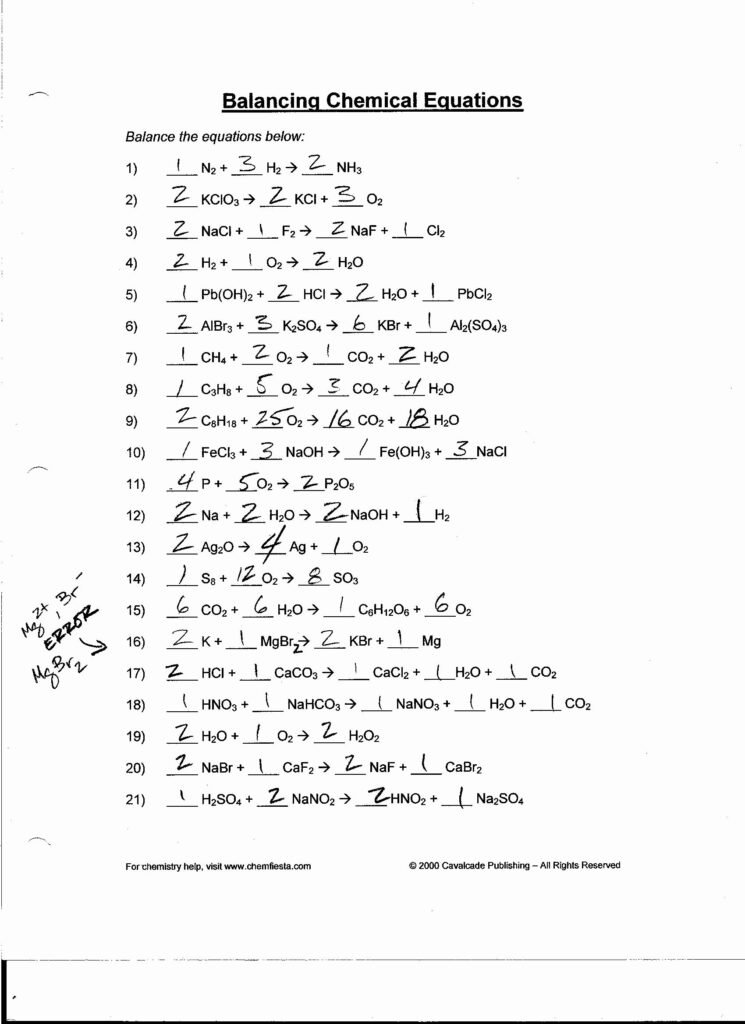 Balancing Chemical Equations
Balance the equations below:
1) 1 N2 + 3 H2 → 2 NH3
2) 2 KClO3 → 2 KCl + 3 O2
3) 2 NaCl + 1 F2 → 2 NaF + 1 Cl2
4) 2 H2 + 1 O2 → 2 H2O
5) 1 Pb(OH)2 + 2 HCl → 2 H2O + 1 PbCl2
6) 2 AlBr3 + 3 K2SO4 → 6 KBr + 1 Al2(SO4)3
7) 1 CH4 + 2 O2 → 1 CO2 + 2 H2O
8) 1 C3H8 + 5 O2 → 3 CO2 + 4 H2O
9) 2 C8H18 + 25 O2 → 16 CO2 + 18 H2O
10) 1 FeCl3 + 3 NaOH → 1 Fe(OH)3 + 3 NaCl
11) 4 P + 5 O2 → 2 P2O5
12) 2 Na + 2 H2O → 2 NaOH + 1 H2
13) 2 Ag2O → 4 Ag + 1 O2
14) 1 S8 + 12 O2 → 8 SO3
Mg2+, Br-
15) 6 CO2 + 6 H2O → 1 C6H12O6 + 6 O2
ERROR
16) 2 K + 1 MgBr2 → 2 KBr + 1 Mg
MgBr2
17) 2 HCl + 1 CaCO3 → 1 CaCl2 + 1 H2O + 1 CO2
18) 1 HNO3 + 1 NaHCO3 → 1 NaNO3 + 1 H2O + 1 CO2
19) 2 H2O + 1 O2 → 2 H2O2
20) 2 NaBr + 1 CaF2 → 2 NaF + 1 CaBr2
21) 1 H2SO4 + 2 NaNO2 → 2 HNO2 + 1 Na2SO4
For chemistry help, visit www.chemfiesta.com © 2000 Cavalcade Publishing – All Rights Reserved